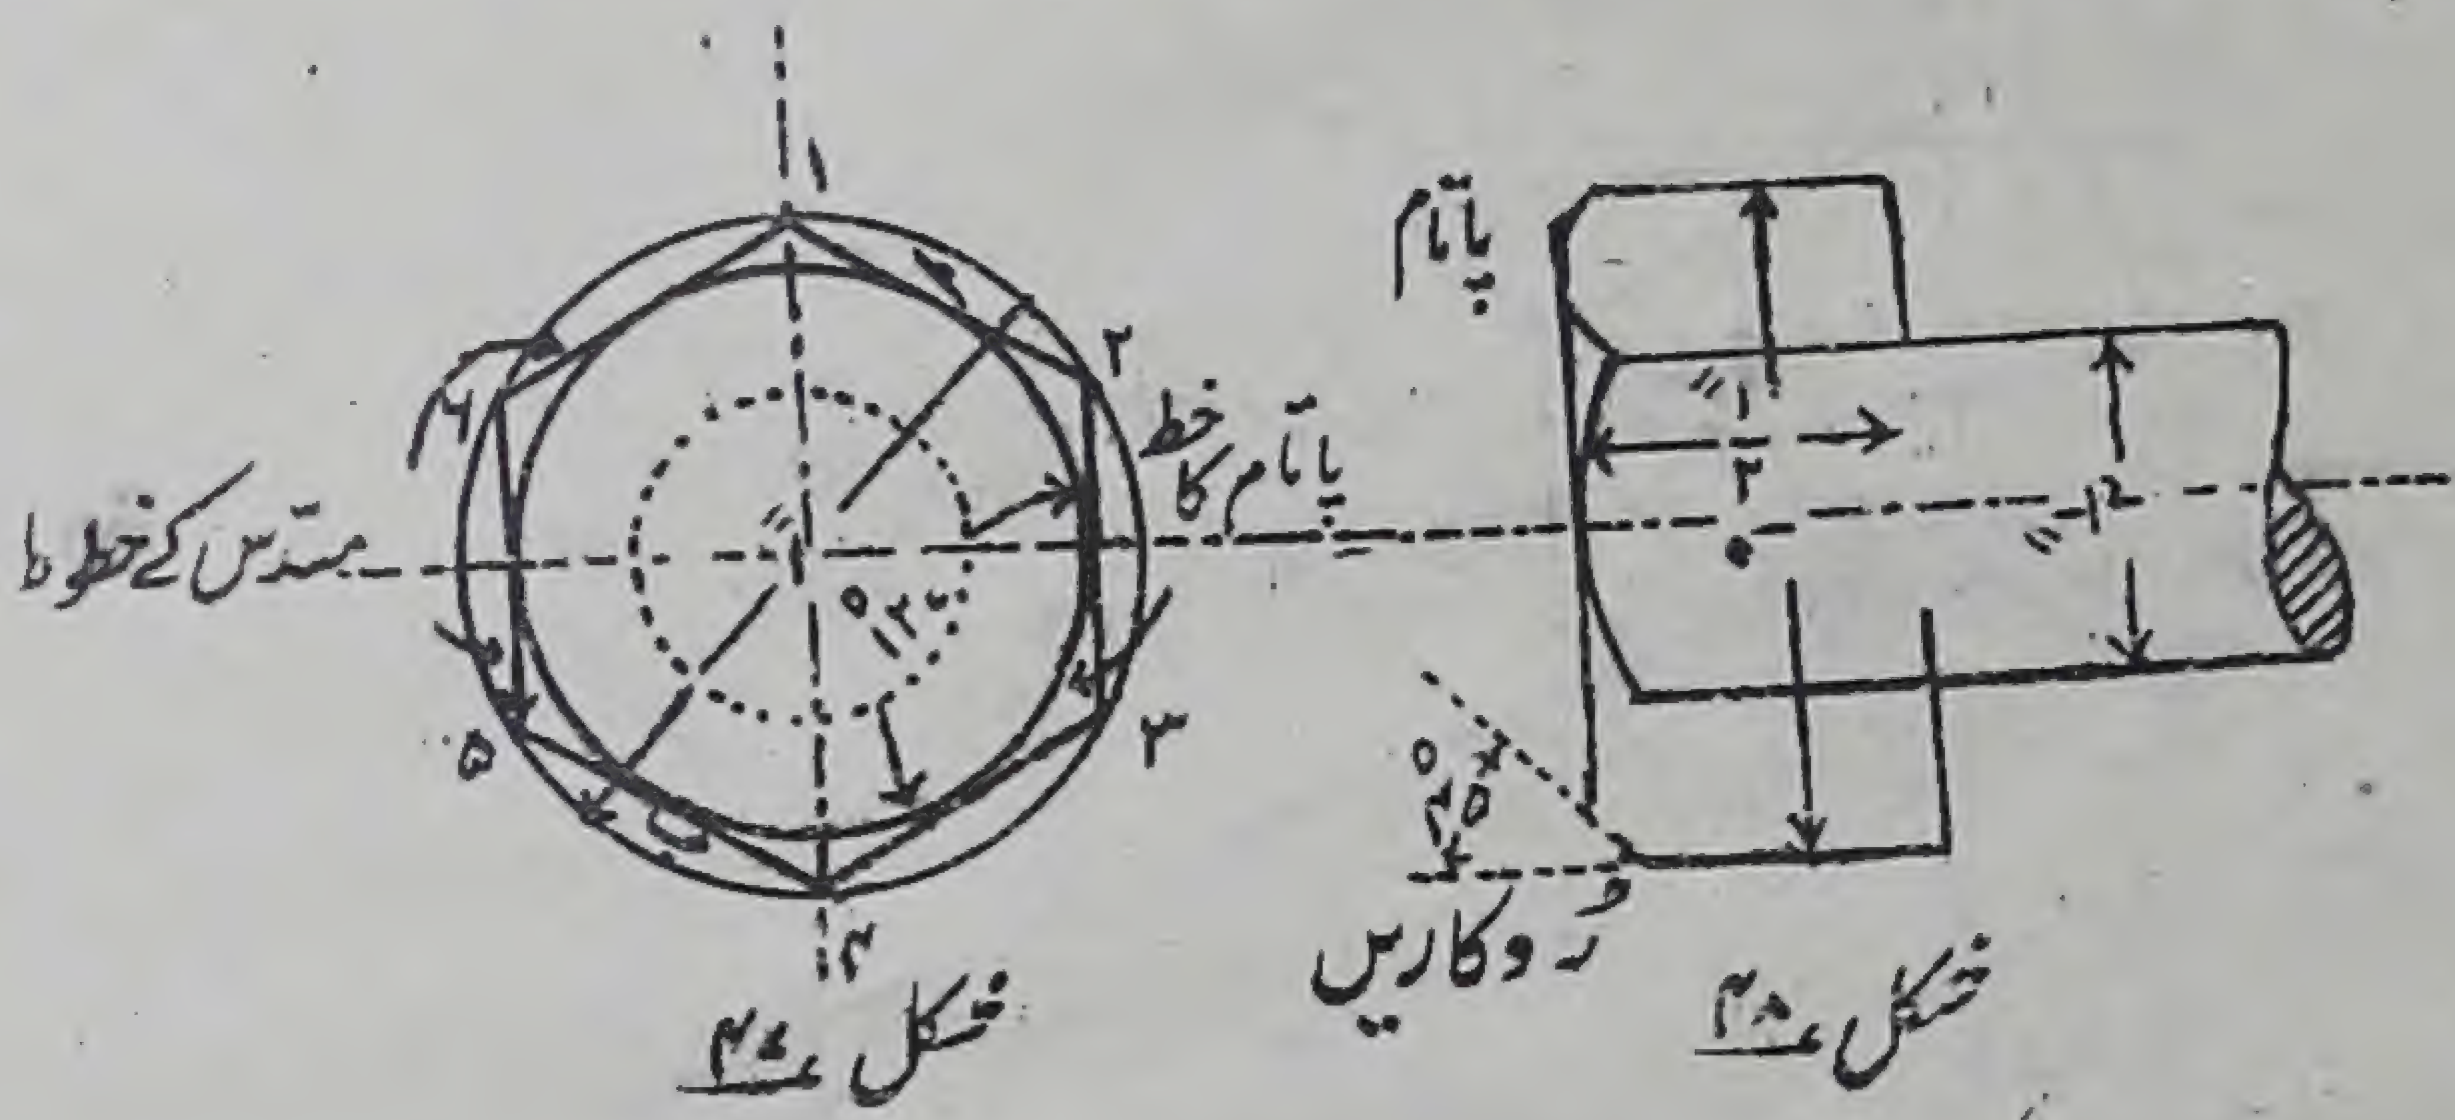 ۱
۲
۳
۴
۵
۶
خط
پاتام کا
مسدس کے خطوط
۱"
۱۲۰°
شکل ۴۷
پاتام
۱"
۲
۴۵°
کارپس
شکل ۴۸